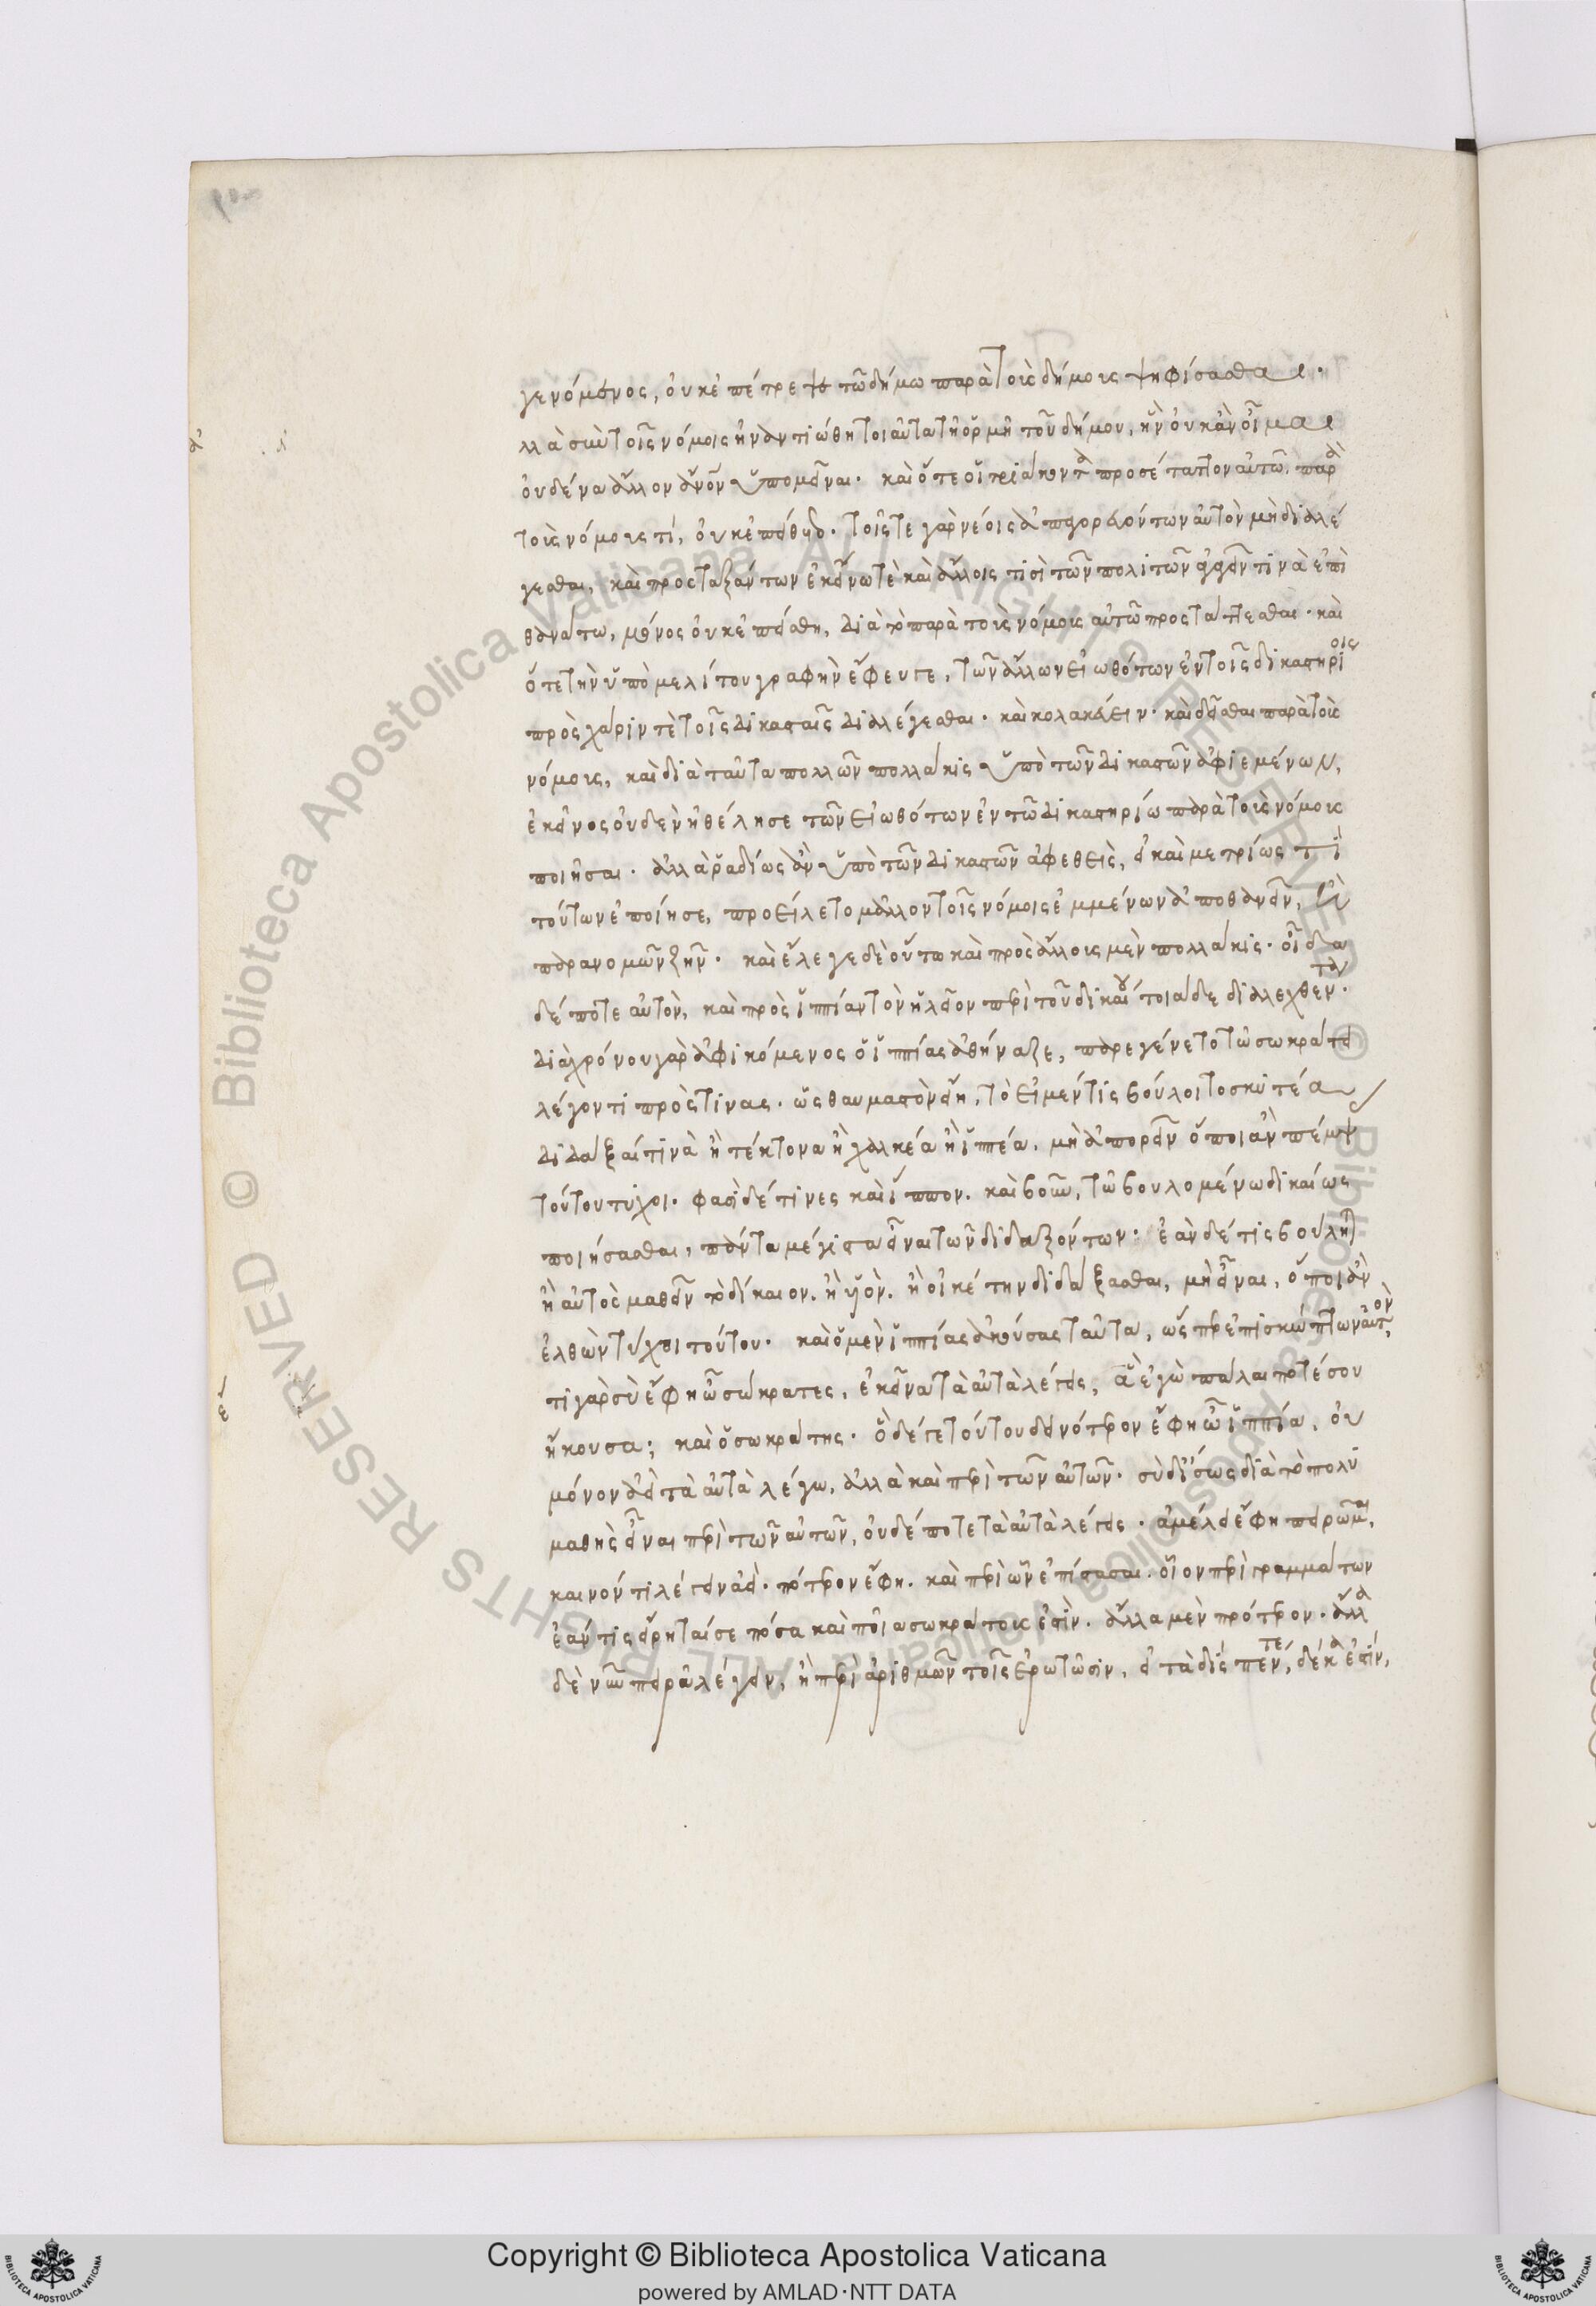 γενόμενος, οὐκ ἐπέτρεψε τῶ δήμω παρὰ τοὺς δήμους ψηφίσασθαι.
λλὰ σὺν τοῖς νόμοις ἠναντιώθη τοιαύτη ὁρμῆ τοῦ δήμου, ἣν οὐκ ἂν οἶμαι
οὐδένα ἄλλον ἄνον ὑπομεῖναι. καὶ ὅτε οἱ τριάκοντα προσέταττον αὐτῶ παρὰ
τοὺς νόμους τί, οὐκ ἐπείθετο. τοῖς τε γὰρ νέοις ἀπαγορευόντων αὐτὸν μὴ διαλέ
γεσθαι, καὶ προσταξάντων ἐκείνω τὲ καὶ ἄλλοις τισὶ τῶν πολιτῶν ἀγαγεῖν τινὰ ἐπὶ
θανάτω, μόνος οὐκ ἐπείσθη, διὰ τὸ παρὰ τοὺς νόμους αὐτῶ προστάττεσθαι. καὶ
ὅτε τὴν ὑπὸ μελίτου γραφὴν ἔφευγε, τῶν ἄλλων εἰωθότων ἐν τοῖς δικαστηρίοις
πρὸς χάριν τὲ τοῖς δικασταῖς διαλέγεσθαι. καὶ κολακεύειν. καὶ δεῖσθαι παρὰ τοὺς
νόμους, καὶ διὰ ταῦτα πολλῶν πολλάκις ὑπὸ τῶν δικαστῶν ἀφιεμένων,
ἐκεῖνος οὐδὲν ἠθέλησε τῶν εἰωθότων ἐν τῶ δικαστηρίω παρὰ τοὺς νόμους
ποιῆσαι. ἀλλὰ ῥαδίως ἂν ὑπὸ τῶν δικαστῶν ἀφεθεὶς, εἰ καὶ μετρίως τί
τούτων ἐποίησε, προείλετο μᾶλλον τοῖς νόμοις ἐμμένων ἀποθανεῖν, ἢ
παρανομῶν ζῆν. καὶ ἔλεγε δὲ οὕτω καὶ πρὸς ἄλλους μὲν πολλάκις. οἶδα
δέ ποτε αὐτὸν, καὶ πρὸς ἱππίαν τὸν ἠλεῖον περὶ τοῦ δικαίου τοιάδε διαλεχθέντα.
διὰ χρόνου γὰρ ἀφικόμενος ὁ ἱππίας ἀθήναζε, παρεγένετο τῶ σωκράτει
λέγοντι πρός τινας. ὡς θαυμαστὸν εἴη, τὸ εἰ μέν τις βούλοιτο σκυτέα
διδάξαί τινὰ ἢ τέκτονα ἢ χαλκέα ἢ ἱππέα. μὴ ἀπορεῖν ὅποι ἂν πέμψ
τούτου τύχοι. φασὶ δέ τινες καὶ ἵππον. καὶ βοῦν, τῶ βουλομένω δικαίως
ποιήσασθαι, πάντα μέγιστα εἶναι τῶν διδαξόντων. ἐὰν δέ τις βούληται
ἢ αὐτὸς μαθεῖν τὸ δίκαιον. ἢ υἱὸν. ἢ οἰκέτην διδάξασθαι, μὴ εἶναι, ὅποι ἂν
ἐλθὼν τύχοι τούτου. καὶ ὁ μὲν ἱππίας ἀκούσας ταῦτα, ὥσπερ ἐπισκώπτων αὐτὸν,
τί γὰρ σὺ ἔφη ὦ σώκρατες, ἐκεῖνα τὰ αὐτὰ λέγεις, ἃ ἐγὼ πάλαι ποτέ σου
ἤκουσα; καὶ ὁ σωκράτης. ὃ δέ γε τούτου δεινότερον ἔφη ὦ ἱππία, οὐ
μόνον ἀεὶ τὰ αὐτὰ λέγω, ἀλλὰ καὶ περὶ τῶν αὐτῶν. σὺ δ' ἴσως διὰ τὸ πολυ
μαθὴς εἶναι περὶ τῶν αὐτῶν, οὐδέποτε τὰ αὐτὰ λέγεις. ἀμέλει ἔφη πειρῶμαι,
καινόν τι λέγειν ἀεί. πότερον ἔφη. καὶ περὶ ὧν ἐπίστασαι. οἷον περὶ γραμμάτων
ἐάν τις ἔρηταί σε πόσα καὶ ποῖα σωκράτους ἐστὶν. ἄλλα μὲν πρότερον. ἄλλα
δὲ νῦν πειρᾶ λέγειν, ἢ περὶ ἀριθμῶν τοῖς ἐρωτῶσιν, εἰ τὰ δὶς πέντε, δέκα ἐστίν,